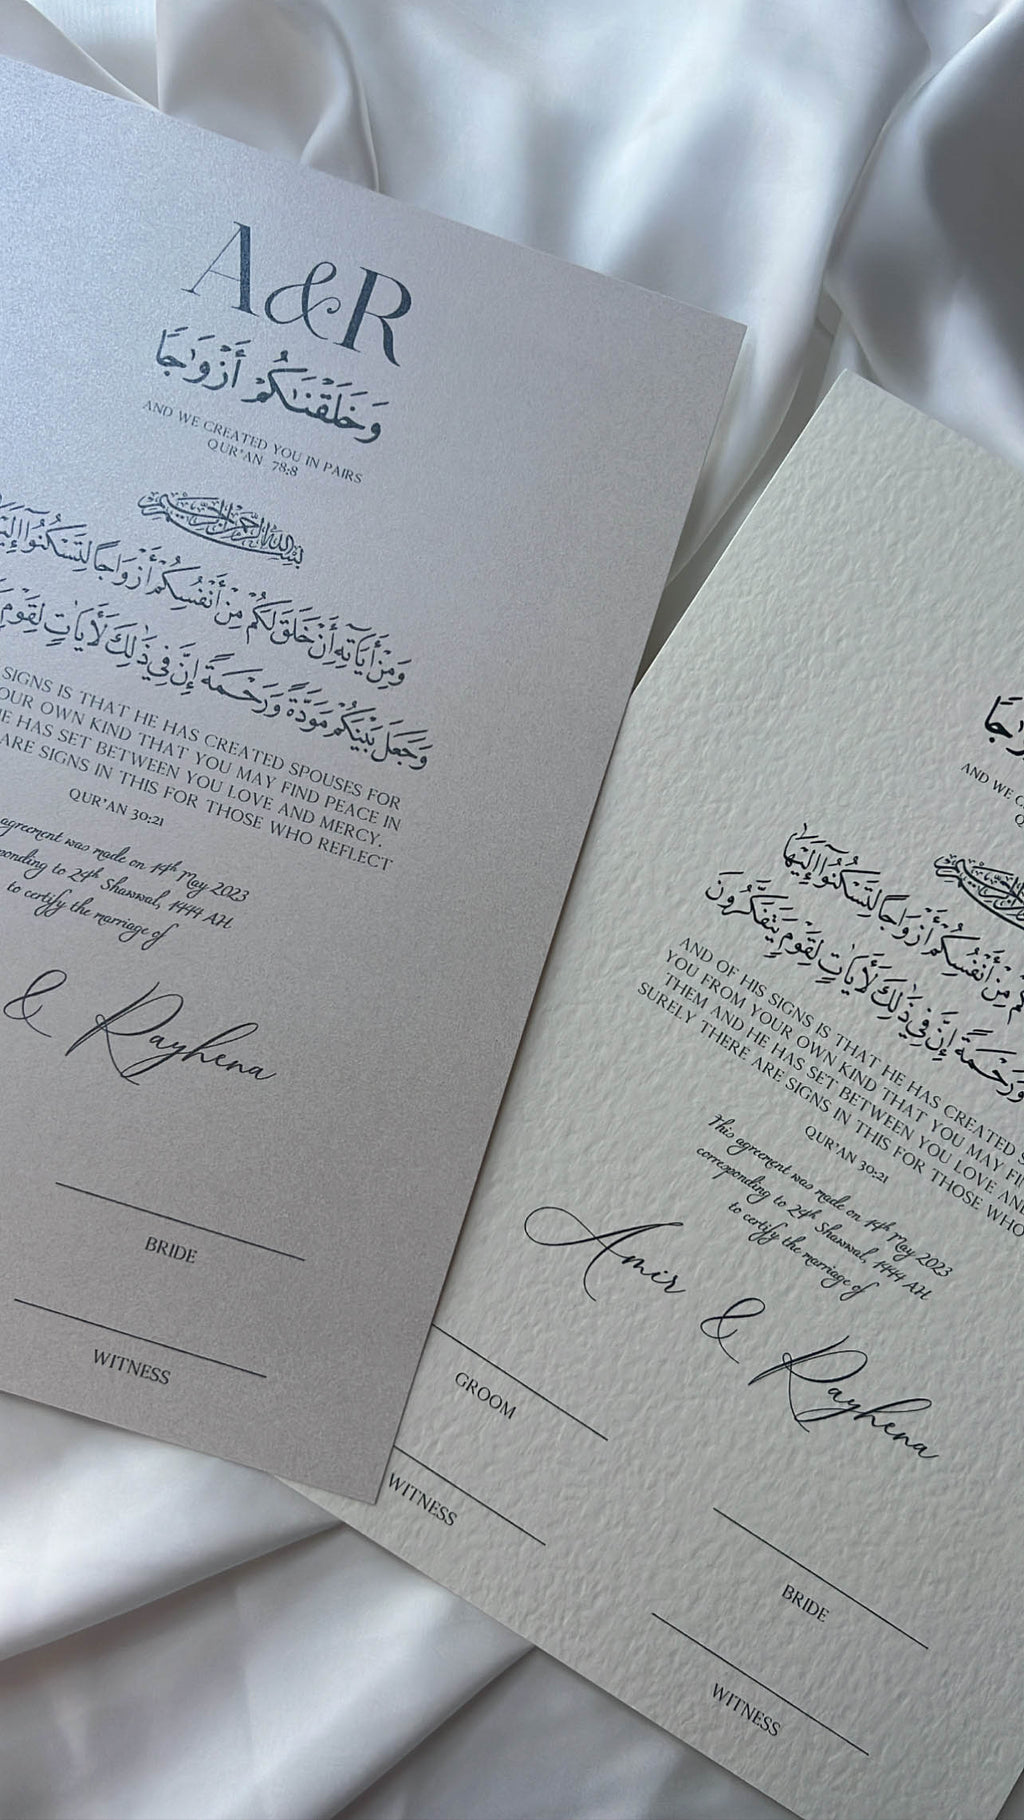 A&R
وَخَلَقْنَٰكُمْ أَزْوَٰجًا
AND WE CREATED YOU IN PAIRS
QUR'AN 78:8
بِسْمِ اللهِ الرَّحْمٰنِ الرَّحِيمِ
وَمِنْ أَيَاتِهِ أَنْ خَلَقَ لَكُمْ مِنْ أَنْفُسِكُمْ أَزْوَاجًا لِتَسْكُنُوا
وَجَعَلَ بَيْنَكُمْ مَوَدَّةً وَرَحْمَةً إِنَّ فِي ذَٰلِكَ لَأَيَاتٍ لِقَوْمٍ
SIGNS IS THAT HE HAS CREATED SPOUSES FOR
OUR OWN KIND THAT YOU MAY FIND PEACE IN
HE HAS SET BETWEEN YOU LOVE AND MERCY.
ARE SIGNS IN THIS FOR THOSE WHO REFLECT
QUR'AN 30:21
agreement was made on 14th May 2023
ponding to 24th Shawwal, 1444 AH
to certify the marriage of
& Rayhena
BRIDE
WITNESS
AND WE C
مِنْ أَنْفُسِكُمْ أَزْوَاجًا لِتَسْكُنُوا إِلَيْهَا
وَرَحْمَةً إِنَّ فِي ذَٰلِكَ لَأَيَاتٍ لِقَوْمٍ يَتَفَكَّرُونَ
AND OF HIS SIGNS IS THAT HE HAS CREATED S
YOU FROM YOUR OWN KIND THAT YOU MAY FI
THEM AND HE HAS SET BETWEEN YOU LOVE AN
SURELY THERE ARE SIGNS IN THIS FOR THOSE WHO
QUR'AN 30:21
This agreement was made on 14th May 2023
corresponding to 24th Shawwal, 1444 AH
to certify the marriage of
Amir & Rayhena
GROOM
BRIDE
WITNESS
WITNESS